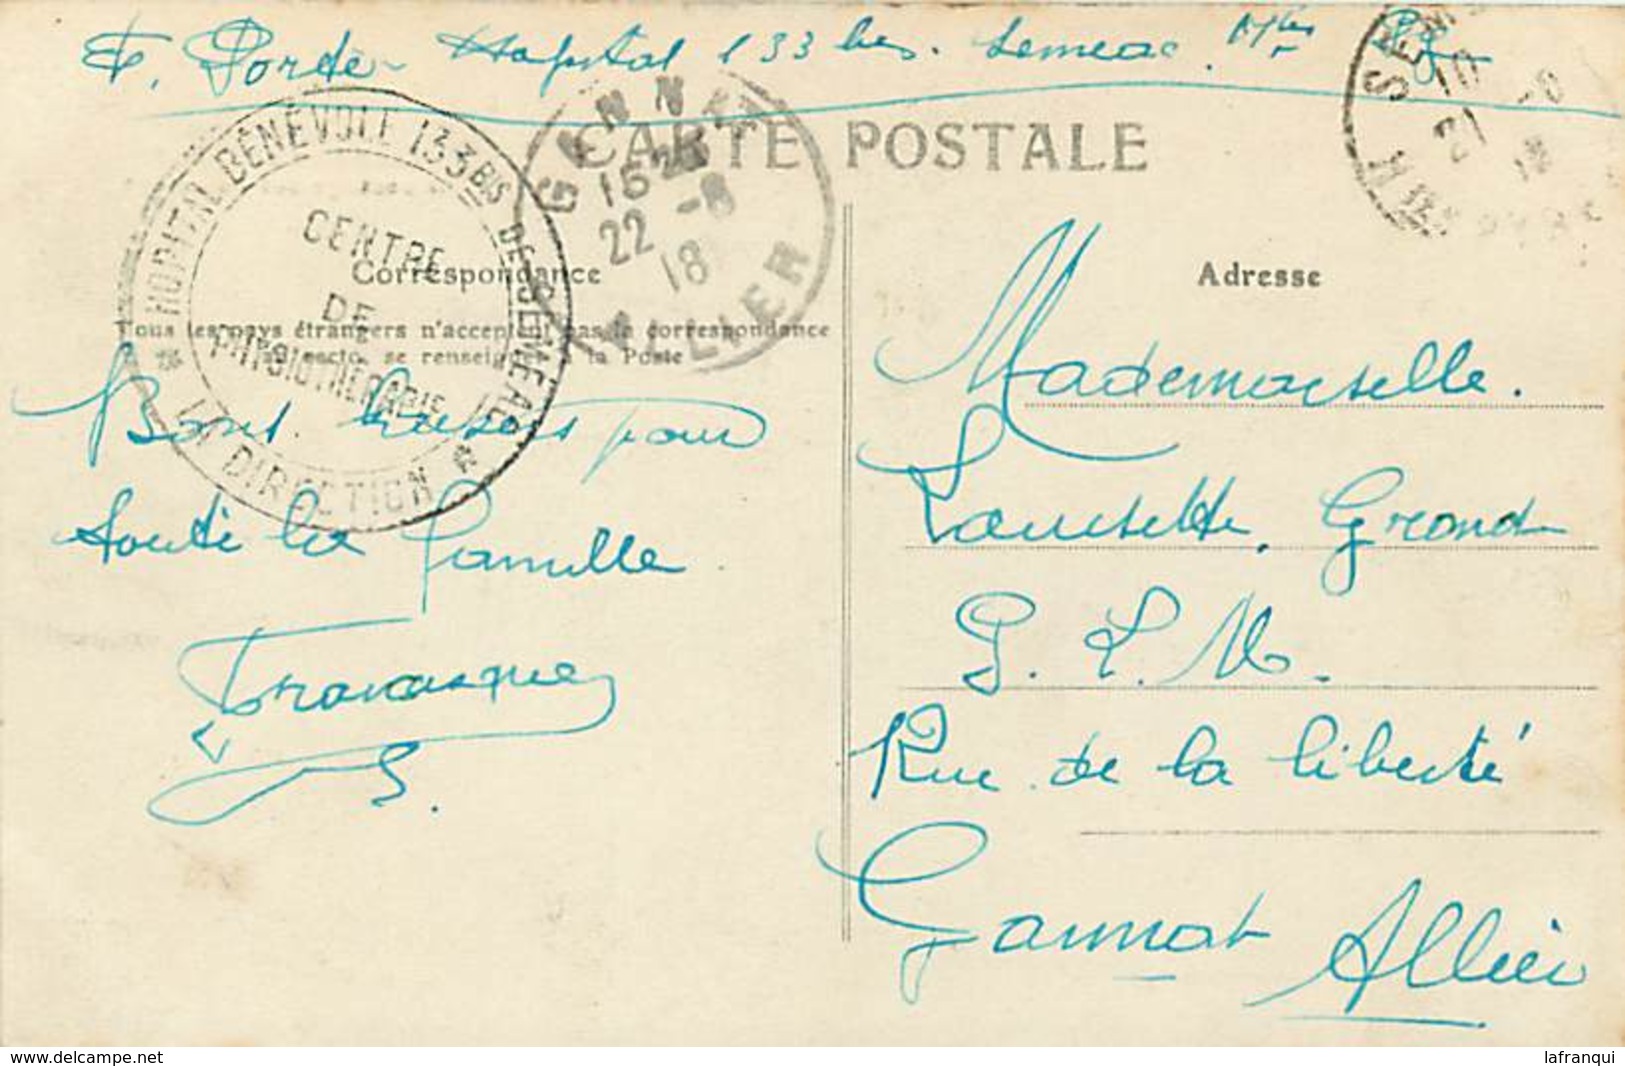 Hopital 133 bis. Semeac. Htes Py
CARTE POSTALE
HOPITAL BÉNÉVOLE 133 BIS DE SÉMÉAC
LA DIRECTION
CENTRE
DE
PHYSIOTHÉRAPIE
GANNAT
15 25
22 -8
18
ALLIER
SEM
10
21
Correspondance
Tous les pays étrangers n'acceptent pas la correspondance
au recto, se renseigner à la Poste
Bons baisers pour
toute la famille
Adresse
Mademoiselle.
Grand
P. L. M.
Rue de la liberté
Gannat Allier
www.delcampe.net
lafranqui